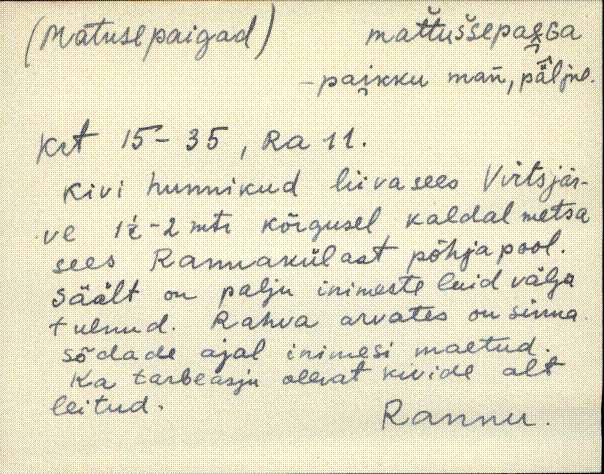 (Matusepaigad) mat̆tušše paeGa
- paikku mañ, päljne.
Krt 15-35, Ra 11.
Kivi hunnikud liiva sees Virtsjär-
ve 1½-2 mtr kõrgusel kaldal metsa
sees Rannakülast põhja pool.
Säält on palju inimeste luid välja
tulnud. Rahva arvates on sinna
sõdade ajal inimesi maetud.
Ka tarbeasju olevat kivide alt
leitud.
Rannu.